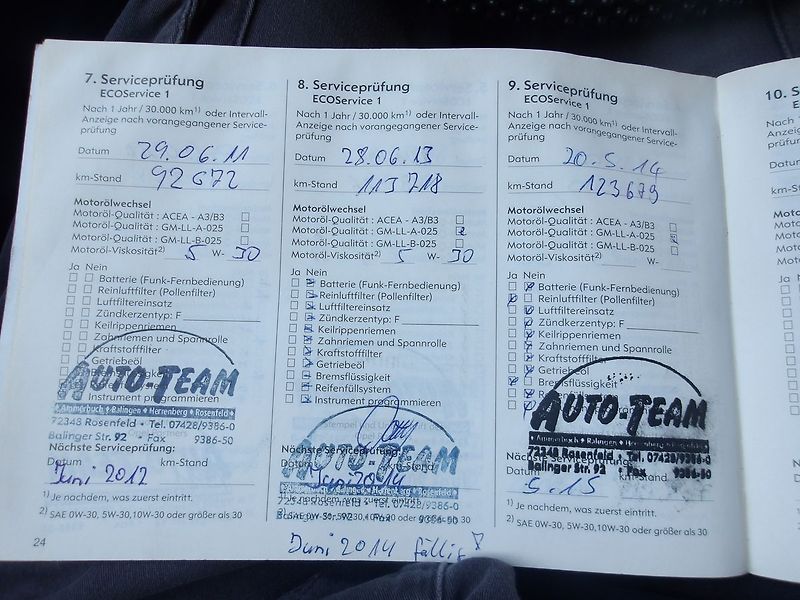 7. Serviceprüfung
ECOService 1
Nach 1 Jahr / 30.000 km1) oder Intervall-
Anzeige nach vorangegangener Service-
prüfung
Datum 29.06.11
km-Stand 92672
Motorölwechsel
Motoröl-Qualität : ACEA - A3/B3
Motoröl-Qualität : GM-LL-A-025
Motoröl-Qualität : GM-LL-B-025
Motoröl-Viskosität2) 5 W- 30
Ja Nein
Batterie (Funk-Fernbedienung)
Reinluftfilter (Pollenfilter)
Luftfiltereinsatz
Zündkerzentyp: F
Keilrippenriemen
Zahnriemen und Spannrolle
Kraftstofffilter
Getriebeöl
Instrument programmieren
AUTO-TEAM
Ammerbuch • Balingen • Herrenberg • Rosenfeld
72348 Rosenfeld • Tel. 07428/9386-0
Balinger Str. 92 • Fax 9386-50
Nächste Serviceprüfung:
Datum km-Stand
Juni 2012
1) Je nachdem, was zuerst eintritt.
2) SAE 0W-30, 5W-30,10W-30 oder größer als 30
24
8. Serviceprüfung
ECOService 1
Nach 1 Jahr / 30.000 km1) oder Intervall-
Anzeige nach vorangegangener Service-
prüfung
Datum 28.06.13
km-Stand 113718
Motorölwechsel
Motoröl-Qualität : ACEA - A3/B3
Motoröl-Qualität : GM-LL-A-025
Motoröl-Qualität : GM-LL-B-025
Motoröl-Viskosität2) 5 W- 30
Ja Nein
Batterie (Funk-Fernbedienung)
Reinluftfilter (Pollenfilter)
Luftfiltereinsatz
Zündkerzentyp: F
Keilrippenriemen
Zahnriemen und Spannrolle
Kraftstofffilter
Getriebeöl
Bremsflüssigkeit
Reifenfüllsystem
Instrument programmieren
AUTO-TEAM
Nächste Serviceprüfung:
Datum km-Stand
Juni 2014
Ammerbuch • Balingen • Herrenberg • Rosenfeld
72348 Rosenfeld • Tel. 07428/9386-0
Balinger Str. 92 • Fax 9386-50
Juni 2014 fällig!
9. Serviceprüfung
ECOService 1
Nach 1 Jahr / 30.000 km1) oder Intervall-
Anzeige nach vorangegangener Service-
prüfung
Datum 20.5.14
km-Stand 123679
Motorölwechsel
Motoröl-Qualität : ACEA - A3/B3
Motoröl-Qualität : GM-LL-A-025
Motoröl-Qualität : GM-LL-B-025
Motoröl-Viskosität2) W-
Ja Nein
Batterie (Funk-Fernbedienung)
Reinluftfilter (Pollenfilter)
Luftfiltereinsatz
Zündkerzentyp: F
Keilrippenriemen
Zahnriemen und Spannrolle
Kraftstofffilter
Getriebeöl
Bremsflüssigkeit
AUTO-TEAM
Ammerbuch • Balingen • Herrenberg • Rosenfeld
72348 Rosenfeld • Tel. 07428/9386-0
Balinger Str. 92 • Fax 9386-50
Nächste Serviceprüfung:
Datum km-Stand
5.15
1) Je nachdem, was zuerst eintritt.
2) SAE 0W-30, 5W-30,10W-30 oder größer als 30
10. S